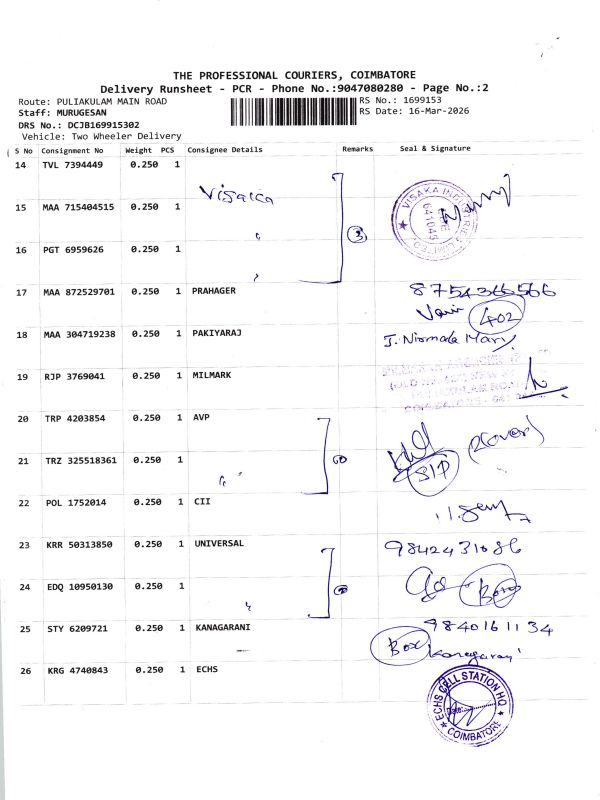 THE PROFESSIONAL COURIERS, COIMBATORE
Delivery Runsheet - PCR - Phone No.:9047080280 - Page No.:2
Route: PULIAKULAM MAIN ROAD
RS No.: 1699153
Staff: MURUGESAN
RS Date: 16-Mar-2026
DRS No.: DCJB169915302
Vehicle: Two Wheeler Delivery
S No Consignment No Weight PCS Consignee Details Remarks Seal & Signature
14 TVL 7394449 0.250 1
Visaka
15 MAA 715404515 0.250 1
3
VISAKA INDUSTRIES LIMITED
641045
16 PGT 6959626 0.250 1
17 MAA 872529701 0.250 1 PRAHAGER 8754366566
402
18 MAA 304719238 0.250 1 PAKIYARAJ J. Nirmala Mary
19 RJP 3769041 0.250 1 MILMARK
20 TRP 4203854 0.250 1 AVP
2 Cover
21 TRZ 325518361 0.250 1
22 POL 1752014 0.250 1 CII
23 KRR 50313850 0.250 1 UNIVERSAL 9842431086
24 EDQ 10950130 0.250 1
Box
25 STY 6209721 0.250 1 KANAGARANI 9840161134
Box Kanagarani
26 KRG 4740843 0.250 1 ECHS
ECHS CELL STATION HQ
COIMBATORE